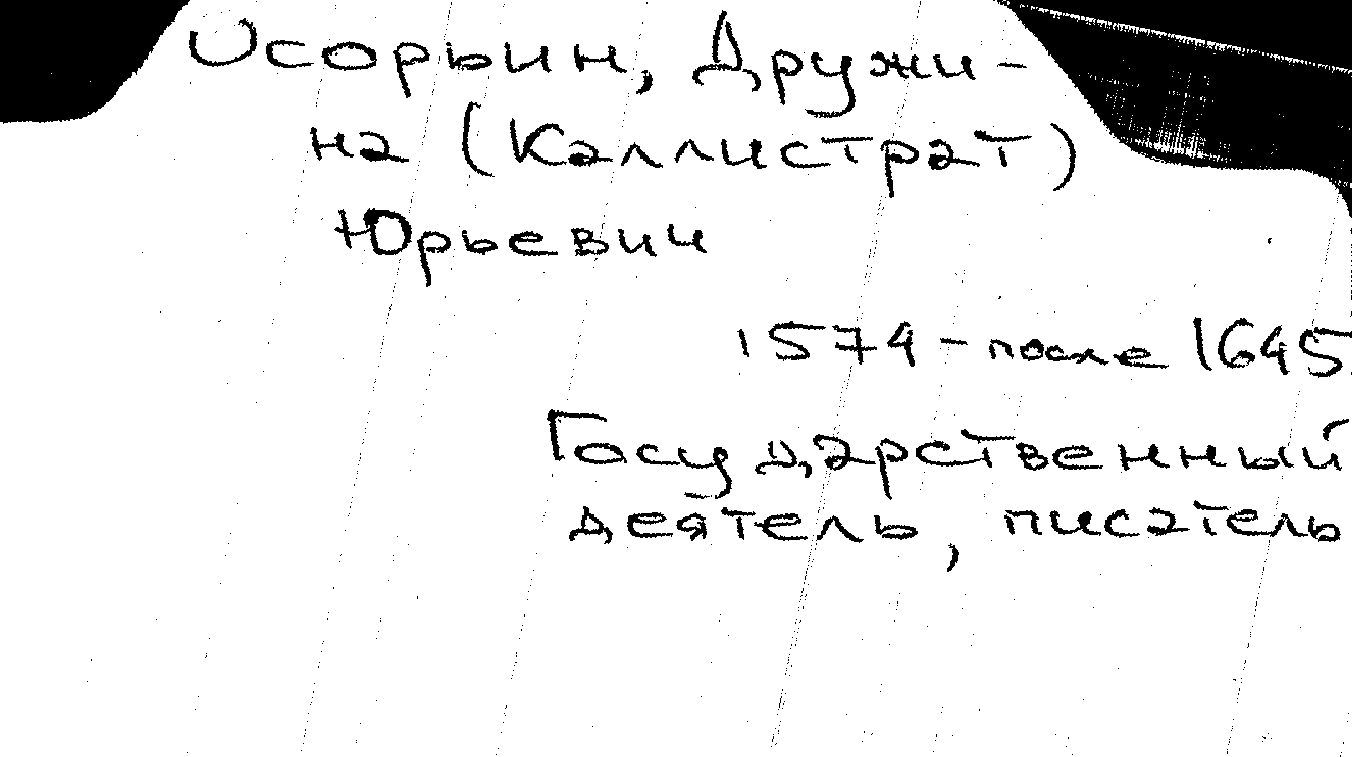 Осорьин, Дружи-
на (Каллистрат)
Юрьевич
1574 - после 1645
Государственный
деятель, писатель